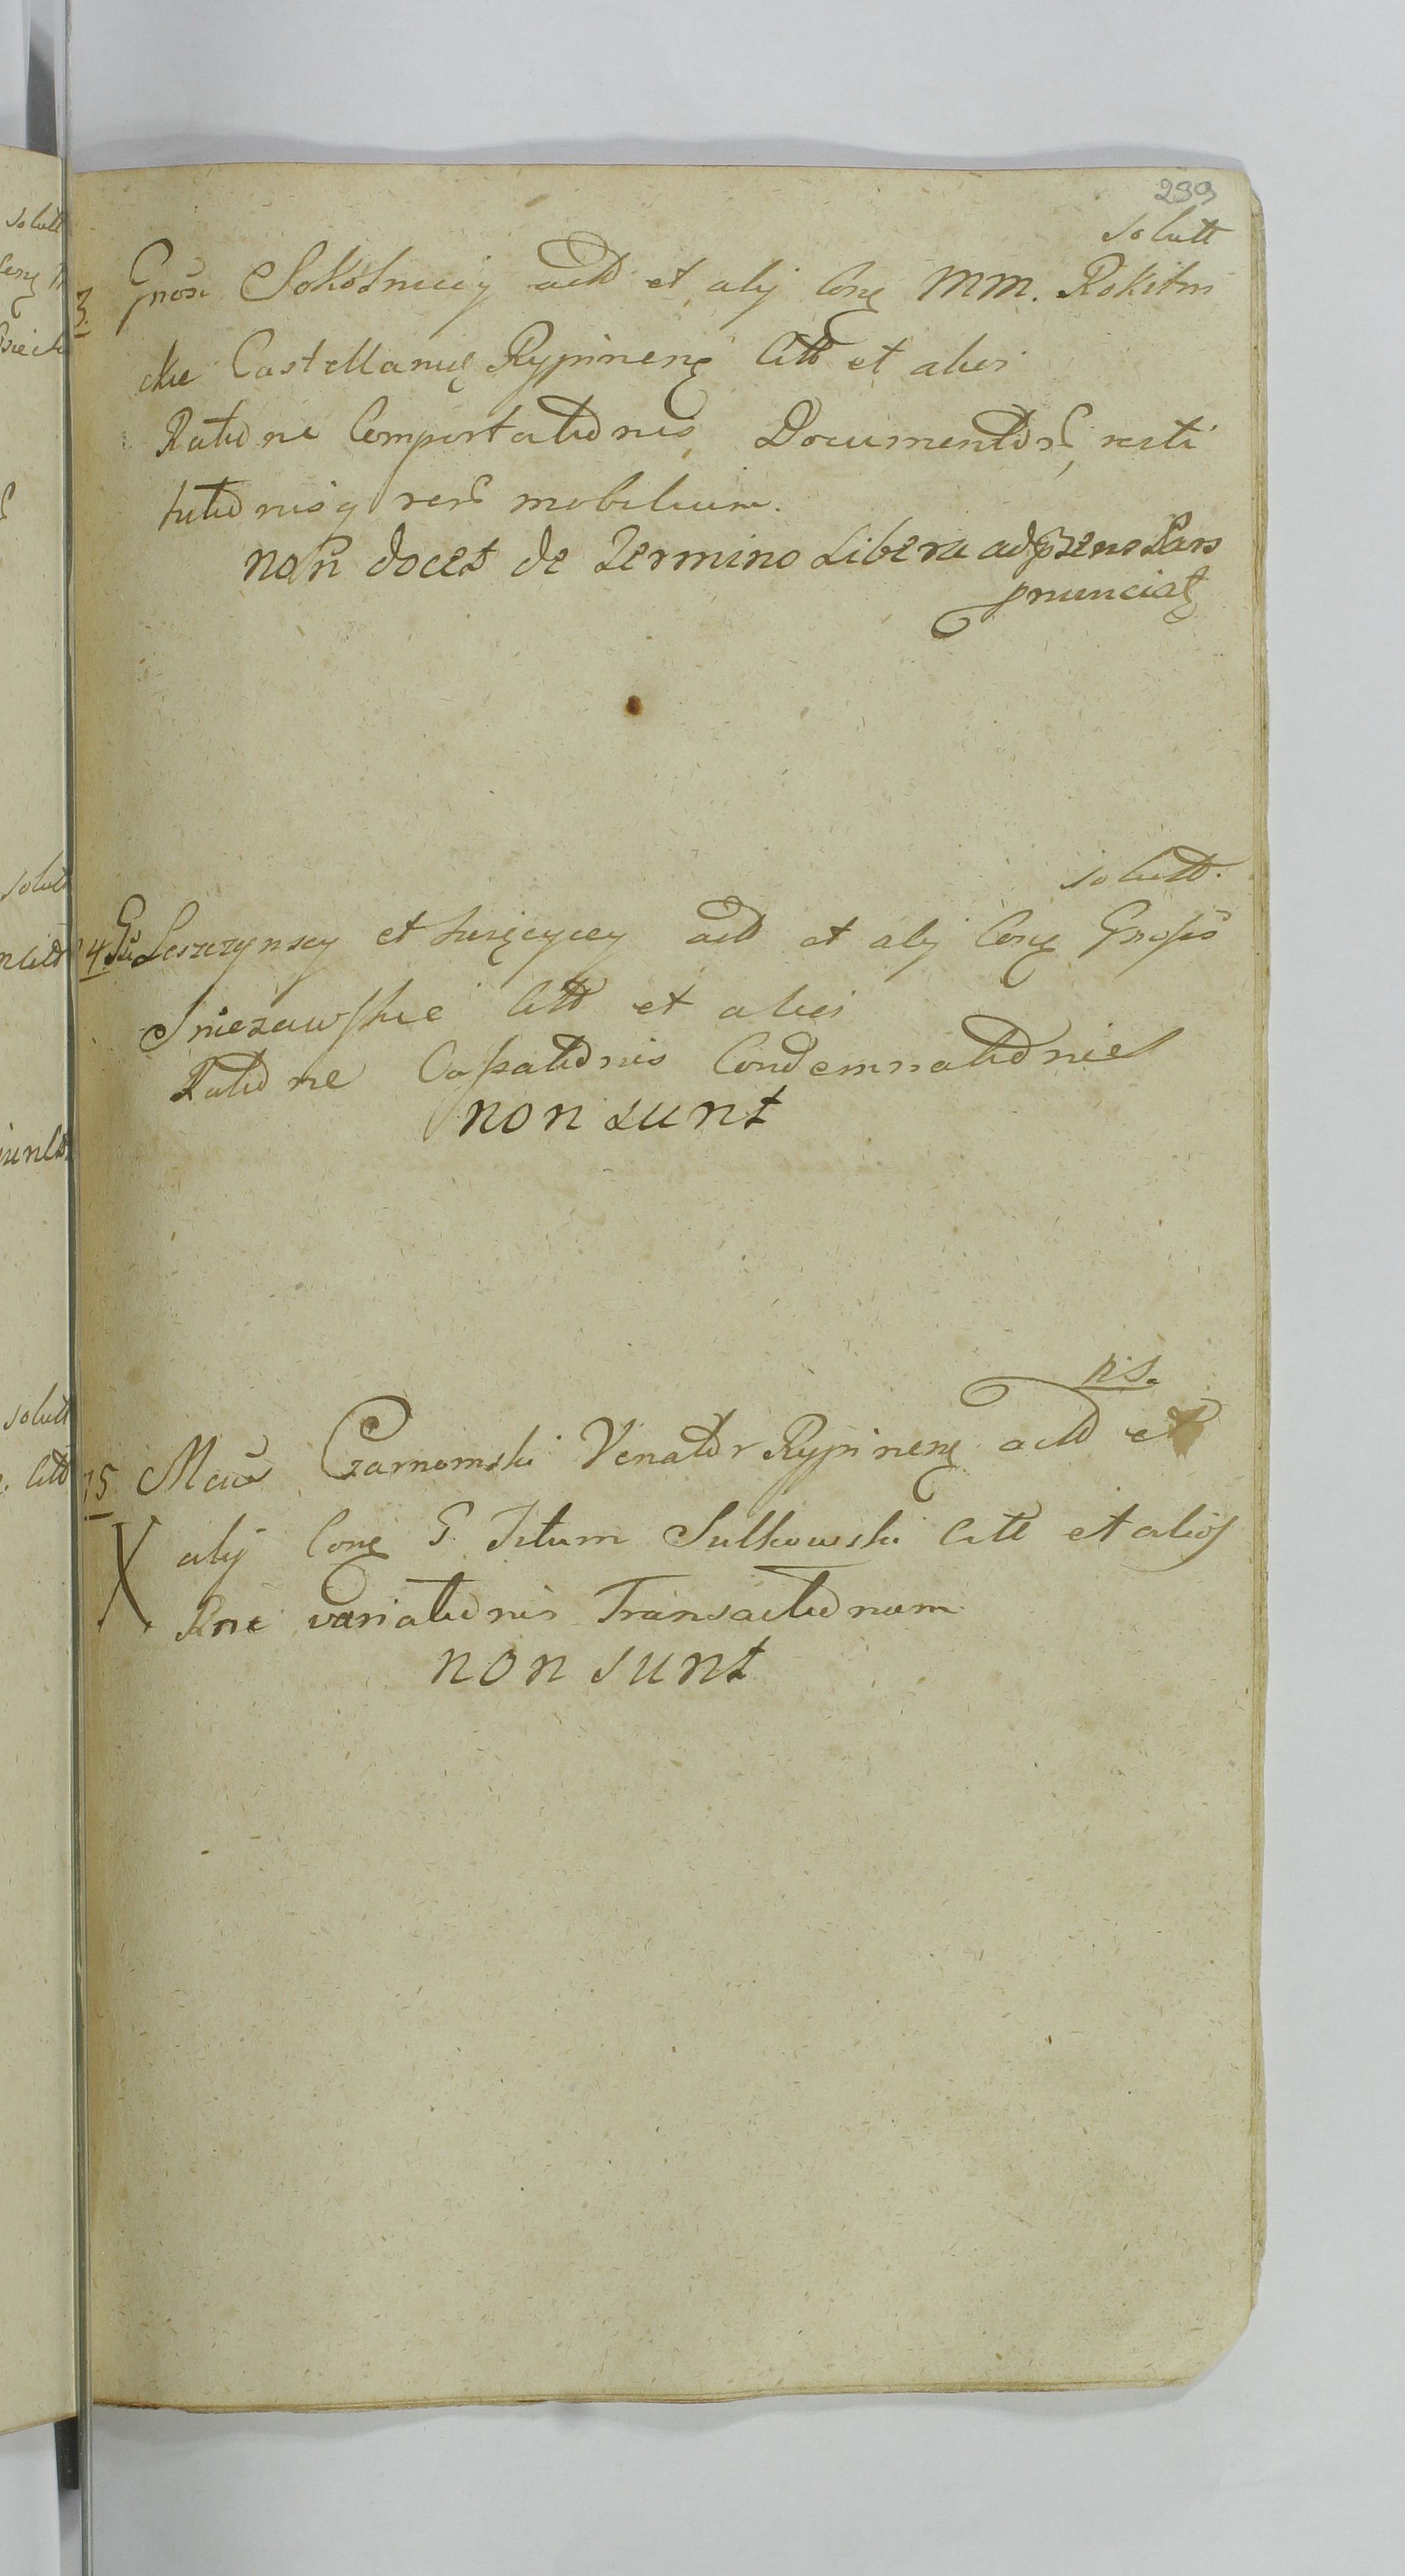 239
solutt
3. Gnosi Sokolniccy actt et alij Conę MM. Rokitni
ckie Castellanię Rypinenę Citt et alios
Ratione Comportationis Documentor, resti
tutionisq rer mobilium.
non docet de Termino Libera adpszens Pars
pnunciatę
solutt.
4. Gsi Leszczynscy et act et alij Conę Gnosos
Sniezawskie Citt et alios
Ratione Cassationis Condemnationis
non sunt
ns.
15 Mcus Czarnomski Venator Rypinenę actt et
alij Conę G. Titum Sulkowski Citt et alios
Rne variationis Transactionum
non sunt